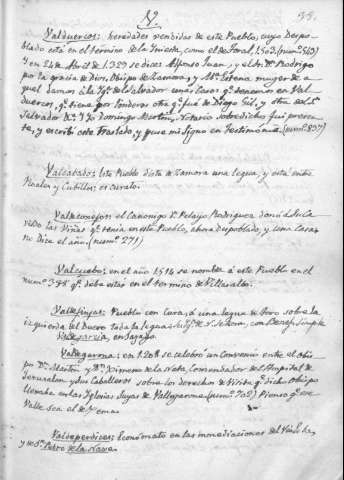 V.
Valduercos: heredades vendidas de este Pueblo, cuyo Despo-
blado está en el termino de la Inieda, como el de Toral, 1.503 (num.º 513)
Y en 24 de Abril de 1.329 se dice: Alfonso Juan, y el dr. Rodrigo
por la gracia de Dios, Obispo de Zamora, y Mª Estena muger de a-
quel damos á la Ygª del Salvador unas Casas qª tenemos en Val
duercos, qª tiene por linderos otra qª fué de Diego Gil, y otra de S.
Salvador &ª: Yo Domingo Martin, Notario sobredicho fuí presen-
te, y escribí este Traslado, y puse mi Signo en Testimonio (num.º 837)
Valcabado: Este Pueblo dista de Zamora una legua, y está entre
Roales y Cubillos: es curato.
Valdeconejos: el Canonigo Dn. Pelayo Rodriguez donó á
las Viñas qª tenia en este Pueblo, ahora despoblado, y una Casa:
no dice el año (num.º 271)
Valcuebo: en el año 1514 se nombra á este Pueblo en el
num.º 398 qª debia estar en el termino de Villaralbo.
Valdefinjas: Pueblo con Cura, á una legua de Toro sobre la
izquierda del Duero toda la legua
de garcia, en Sayago.
Valdegarma: en 1.208 se celebró un Convenio entre el Obis-
po Dn. Martin y Dn. Ximeno de la Nata, Comendador del Hospital de
Jerusalen y sus Caballeros sobre los derechos de Visita qª dicho Obispo
llevaba en las Yglesias suyas de Valdegarma (num.º 702) Pienso qª ese
Valle sea el de Yema
Valdeperdices: Economato en las inmediaciones del
y de Sn. Pedro de la Nave.